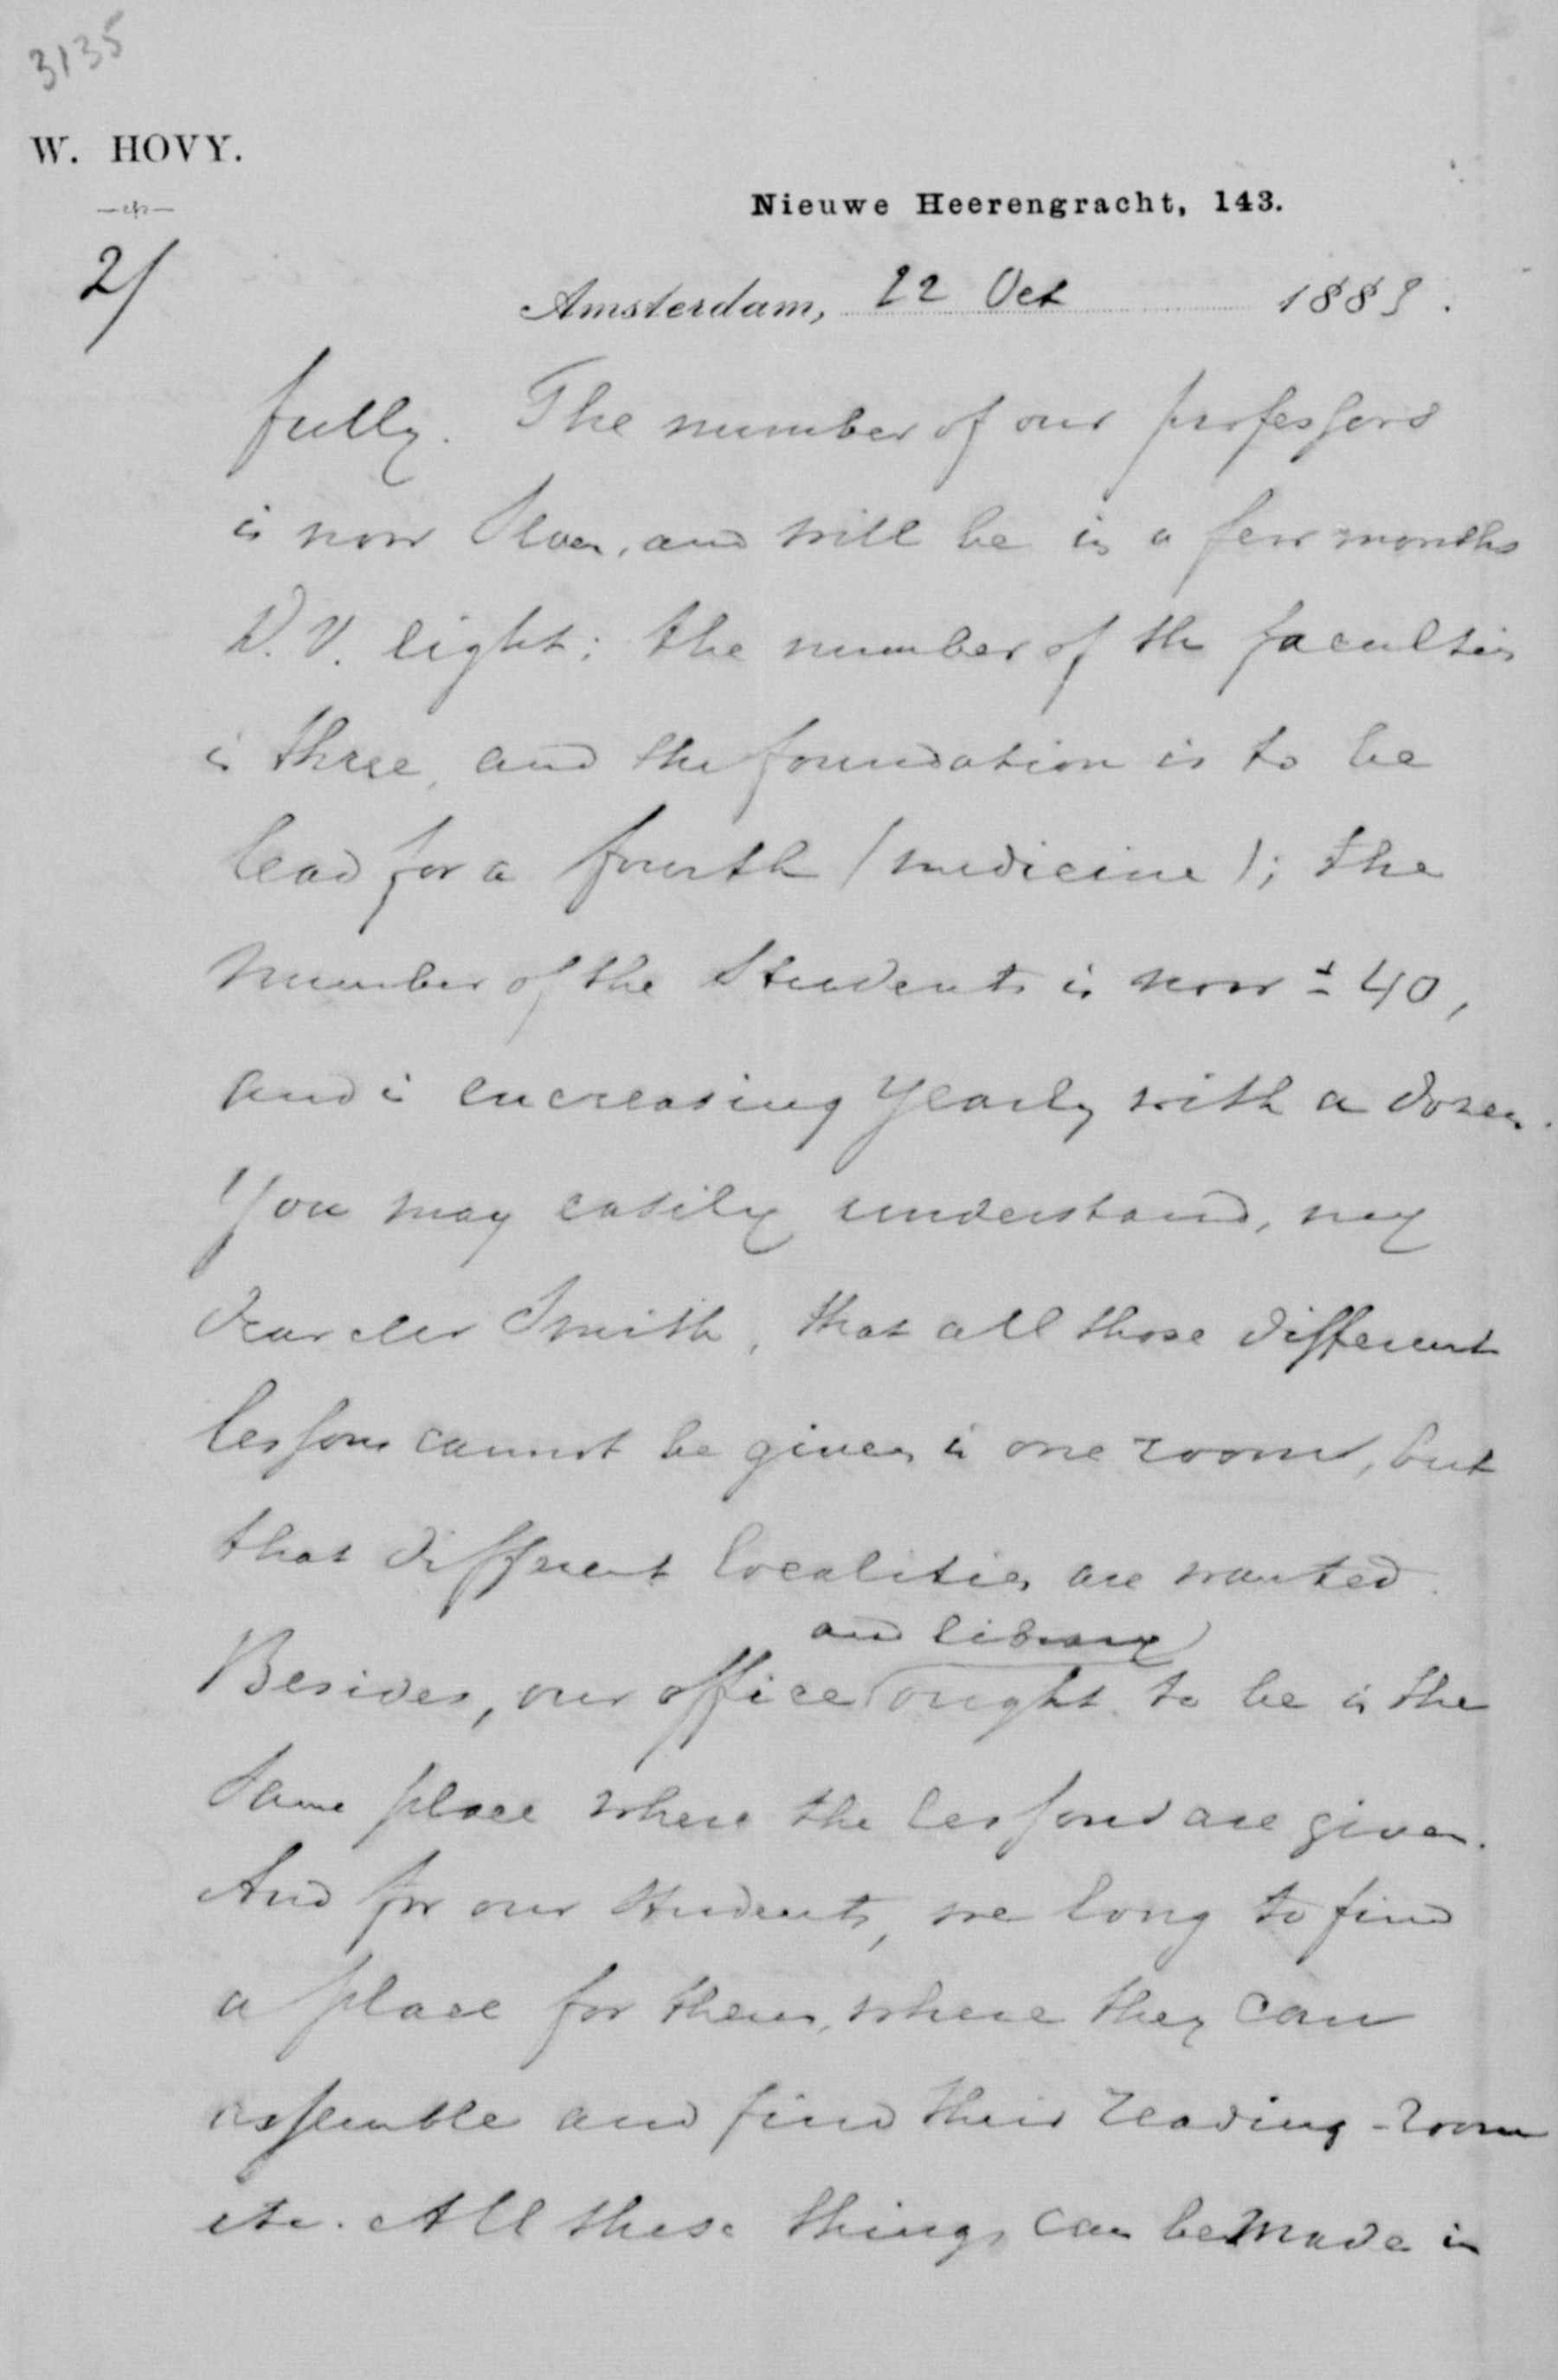 3135
W. HOVY.
Nieuwe Heerengracht, 143.
2/
Amsterdam, 22 Oct 1883.
fully. The number of our professors
is now seven, and will be in a few months
D.V. eight; the number of the faculties
is three, and the foundation is to be
lead for a fourth (medicine); the
number of the students is now ± 40,
and is encreasing yearly with a dozen.
You may easily understand, my
dear Mr Smith, that all those different
lessons cannot be given in one room, but
that different localities are wanted.
Besides, our office and library ought to be in the
same place where the lessons are given.
And for our students, we long to find
a place for them, where they can
assemble and find their reading-room
etc. All these things can be made in